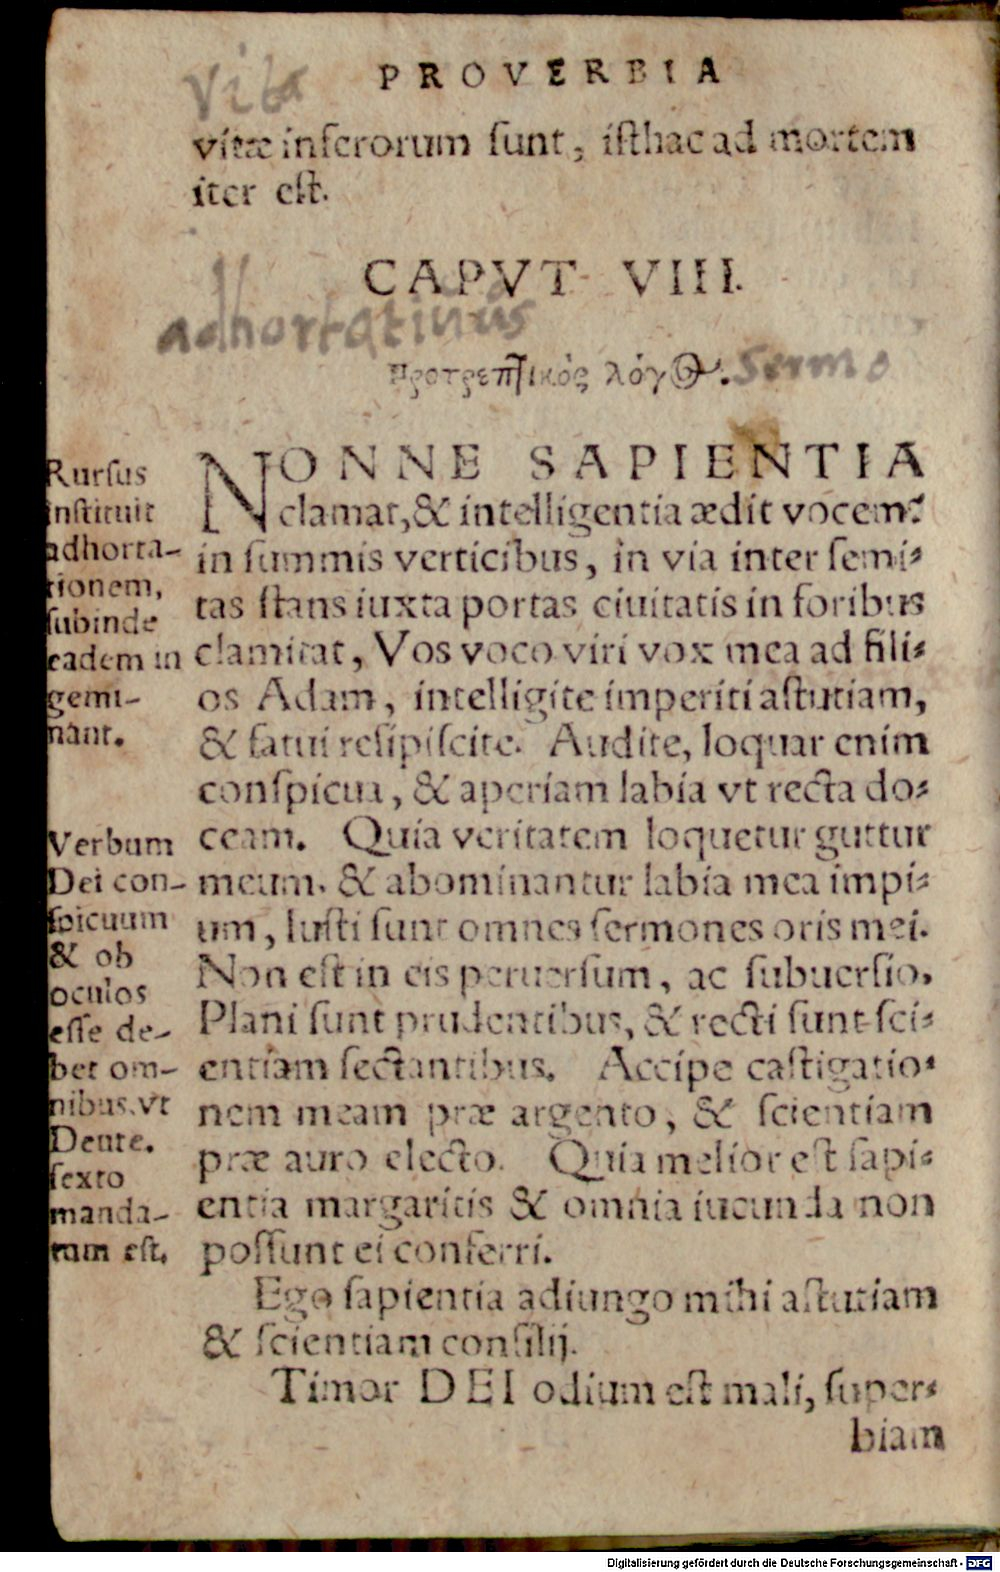 vita
PROVERBIA
vitæ inferorum sunt, isthac ad mortem
iter est.
CAPVT VIII.
adhortatiuus
Προτρεπτικὸς λόγος. Sermo
NONNE SAPIENTIA
clamat, & intelligentia ædit vocem?
in summis verticibus, in via inter semi-
tas stans iuxta portas ciuitatis in foribus
clamitat, Vos voco viri vox mea ad fili-
os Adam, intelligite imperiti astutiam,
& fatui resipiscite. Audite, loquar enim
conspicua, & aperiam labia vt recta do-
ceam. Quia veritatem loquetur guttur
meum. & abominantur labia mea impi-
um, Iusti sunt omnes sermones oris mei.
Non est in eis peruersum, ac subuersio.
Plani sunt prudentibus, & recti sunt sci-
entiam sectantibus. Accipe castigatio-
nem meam præ argento, & scientiam
præ auro electo. Quia melior est sapi-
entia margaritis & omnia iucunda non
possunt ei conferri.
Ego sapientia adiungo mihi astutiam
& scientiam consilij.
Timor DEI odium est mali, super-
biam
Rursus
instituit
adhorta-
tionem,
subinde
eadem in
gemi-
nant.
Verbum
Dei con-
spicuum
& ob
oculos
esse de-
bet om-
nibus. vt
Deute.
sexto
manda-
tum est.
Digitalisierung gefördert durch die Deutsche Forschungsgemeinschaft - DFG